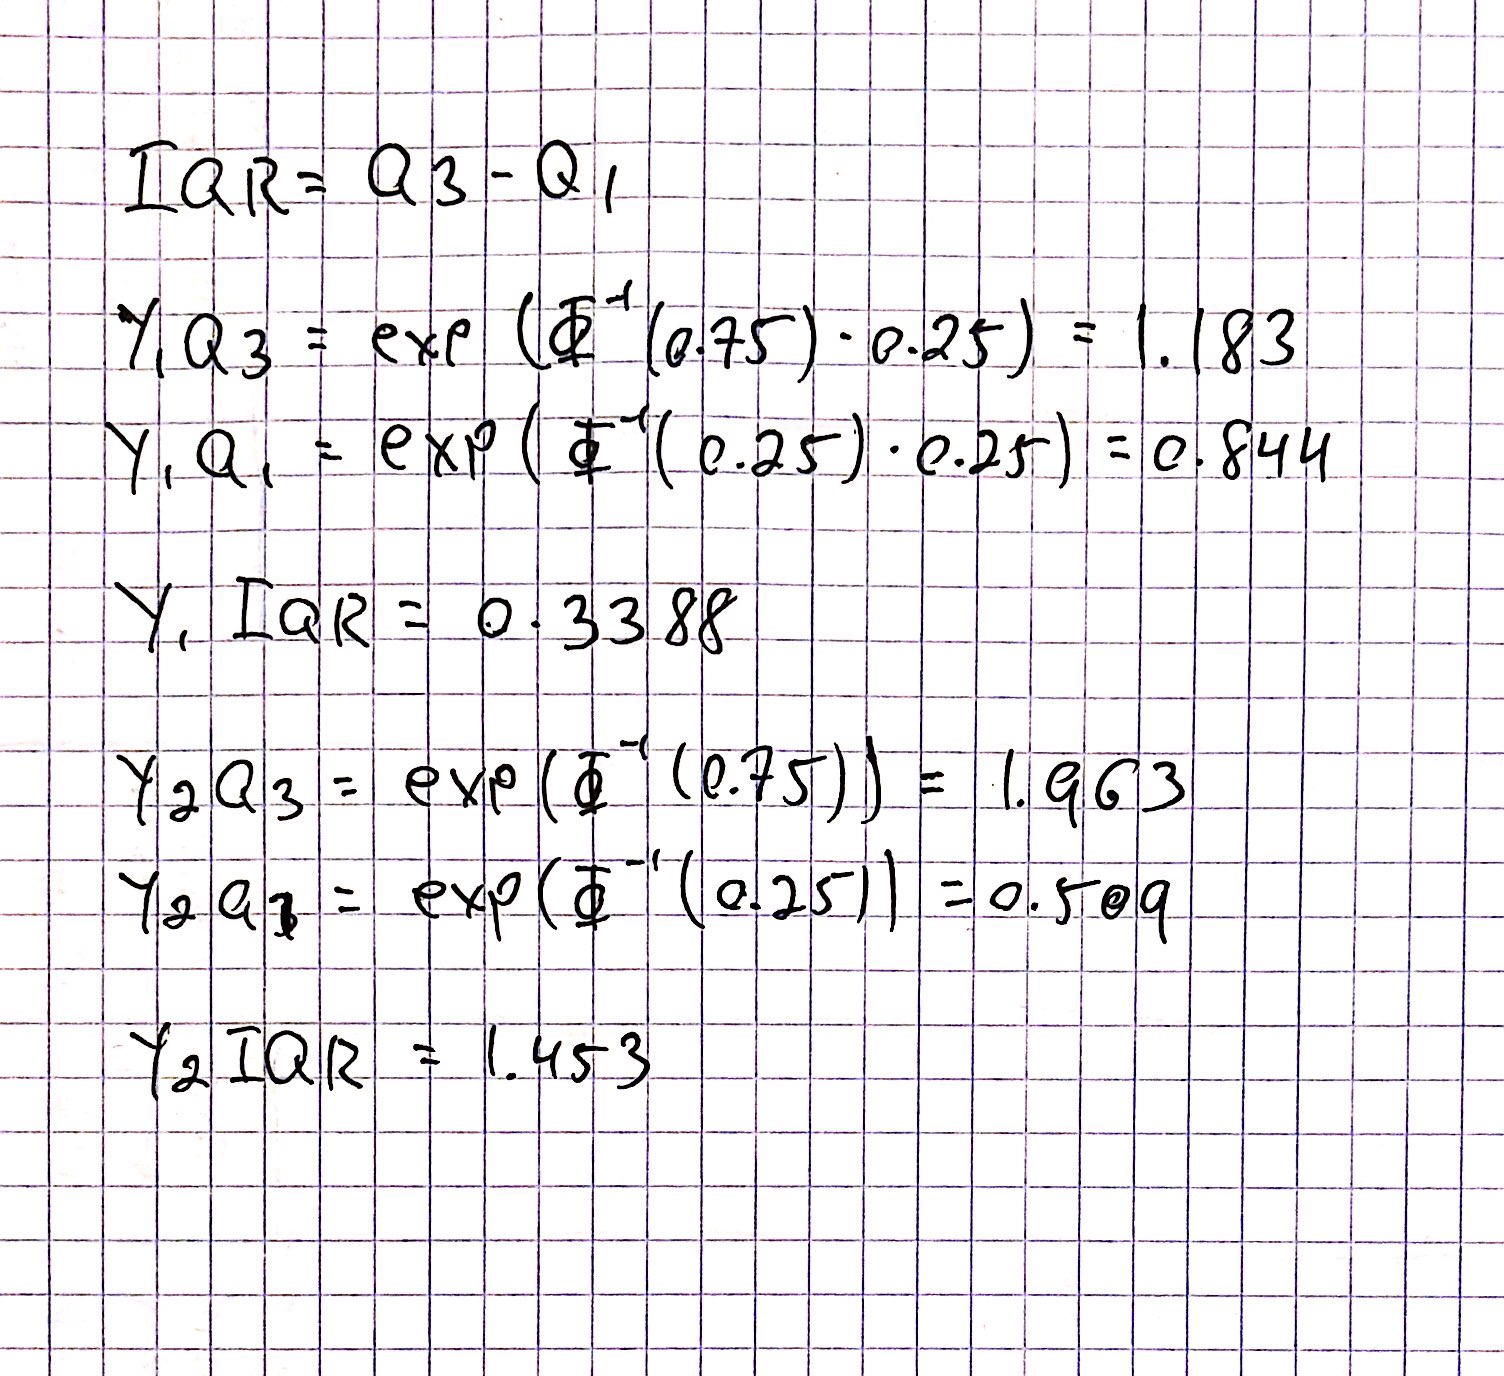 IQR = Q3 - Q1
Y1 Q3 = exp (Φ⁻¹(0.75) · 0.25) = 1.183
Y1 Q1 = exp (Φ⁻¹(0.25) · 0.25) = 0.844
Y1 IQR = 0.3388
Y2 Q3 = exp(Φ⁻¹(0.75)) = 1.963
Y2 Q1 = exp(Φ⁻¹(0.25)) = 0.509
Y2 IQR = 1.453